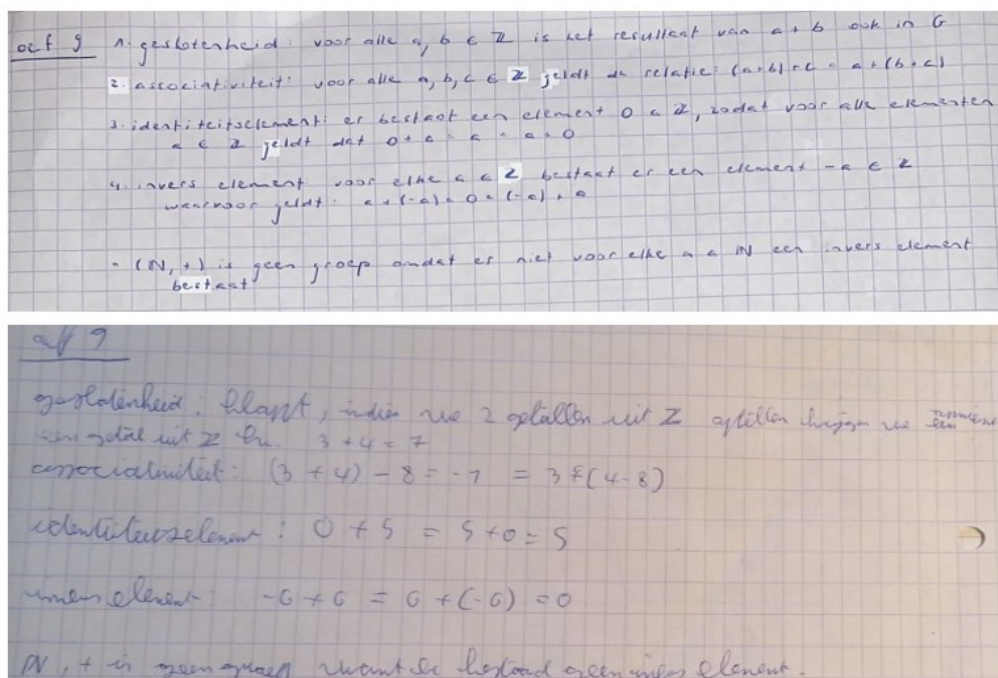 oef 9 1. geslotenheid: voor alle a, b ∈ ℤ is het resultaat van a + b ook in G
2. associativiteit: voor alle a, b, c ∈ ℤ geldt de relatie: (a+b)+c = a+(b+c)
3. identiteitselement: er bestaat een element 0 ∈ ℤ, zodat voor alle elementen
a ∈ ℤ geldt dat 0 + a = a = a + 0
4. invers element voor elke a ∈ ℤ bestaat er een element -a ∈ ℤ
waarvoor geldt: a + (-a) = 0 = (-a) + a
- (ℕ, +) is geen groep omdat er niet voor elke a ∈ ℕ een invers element
bestaat
oef 9
geslotenheid: klopt, indien we 2 getallen uit ℤ optellen krijgen we
een getal uit ℤ bv. 3 + 4 = 7
associativiteit: (3 + 4) - 8 = -1 = 3 + (4 - 8)
identiteitselement: 0 + 5 = 5 + 0 = 5
invers element: -6 + 6 = 6 + (-6) = 0
ℕ, + is geen groep want er bestaad geen invers element.